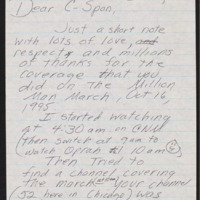 Dear C-Span,
Just a short note
with lots of love, and
respect and millions
of thanks for the
coverage that you,
did on The Million
Man March, Oct 16,
1995
I started watching
at 4:30 am. on CNN
Then switch at 9am to
watch Oprah til 10am
Then Tried to
find a channel covering
the march, your channel
(52 here in Chicago) was